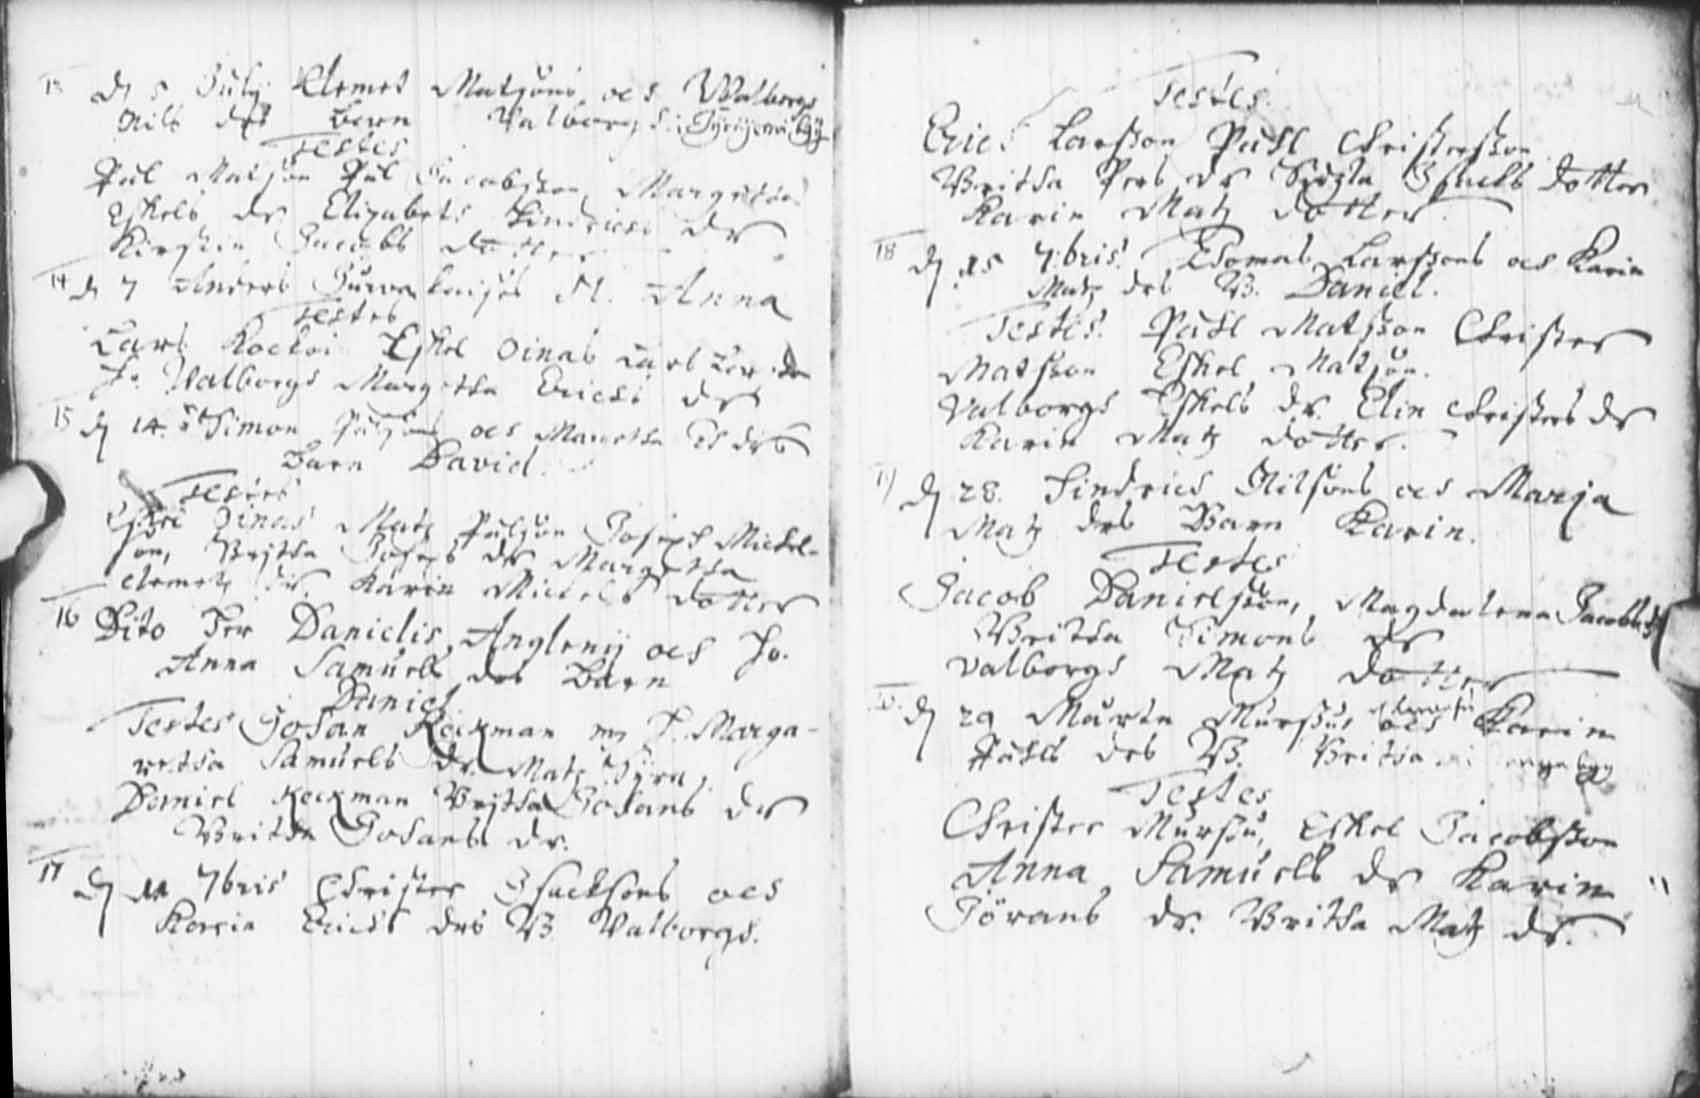 13 d 5 July Clemet Matsons och Walborgs
Nils drs Barn Valborgs
Testes
Pål Matson Pål Jacobsson Margetha
Eskels dr Elizabets Hindrics dr
Kirstin Jacobs dotter
14 d 7 Anders H. Anna
Testes
Lars Kockoi Eskel Oinas Carl
H. Walborgs Margetha Erics dr
15 d 14. Simon och Maretha drs
Barn David.
Testes
Oinas Matz Pålson Joseph Mickel-
son, Britha Joseps dr Margetha
Clemetz dr. Karin Mickels dotter
16 Dito Her Danielis Anglenij och H.
Anna Samuels drs Barn
Daniel
Testes Johan Keckman H. Marga-
retha Samuels dr Matz
Daniel Keckman Britha Johans dr
Britha Johans dr.
17 d 11 7bris Christer Isacksons och
Karin Erics drs B Valborgs.
Testes
Erich Larsson Påhl Christersson
Britha Pers dr Isacks dotter
Karin Matz dotter
18 d 15 7:bris. Thomas Larssons och Karin
Matz drs B. Daniel.
Testes. Påhl Matsson Christer
Matsson Eskel Matson.
Valborgs Eskels dr. Elin Christers dr
Karin Matz dotter.
d 28. Hindrics Nilsons och Marja
Matz drs Barn Karin.
Testes
Jacob Danielsson, Magdalena Jacobs dr
Britha Simons dr
Valborgs Matz dotter
d 29 Mårten Mursus och Karin
Påhls drs B. Britha
Testes
Christer Mursu, Eskel Jacobsson
Anna Samuels dr Karin
Jörans dr. Britha Matz dr.